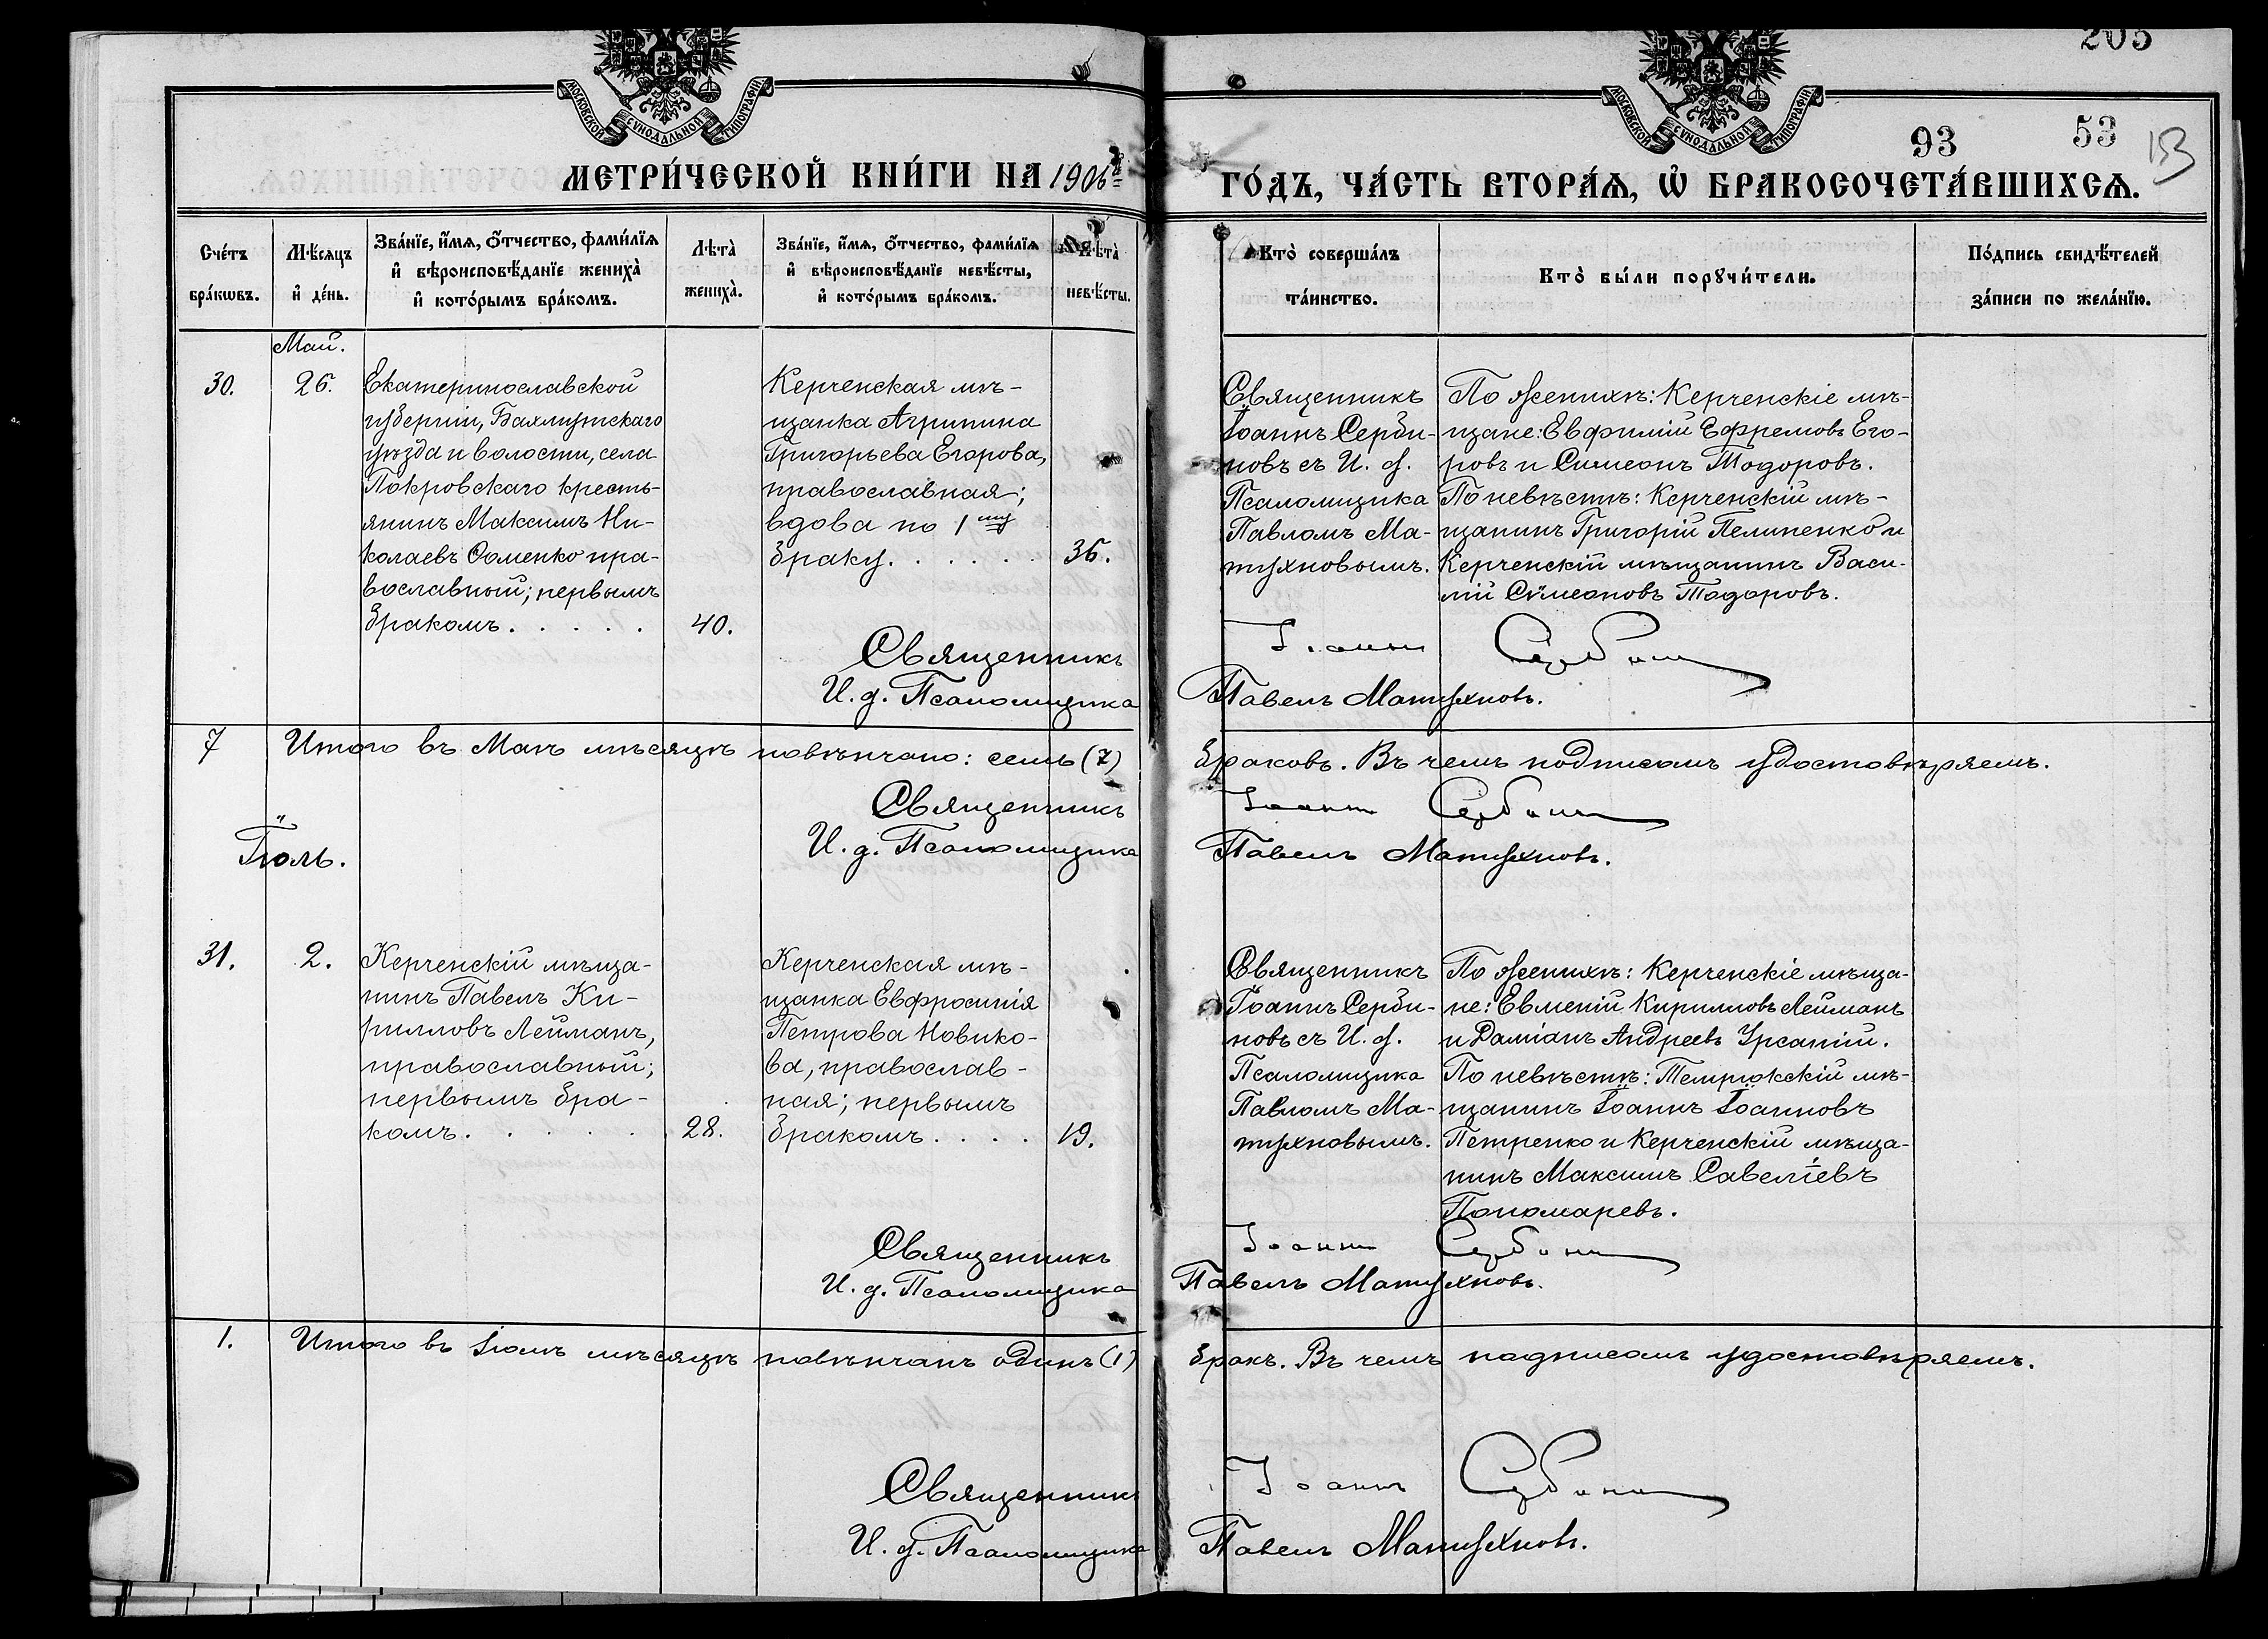 205
93
53
153
МОСКОВСКОЙ СѴНОДАЛЬНОЙ ТИПОГРАФІИ
МОСКОВСКОЙ СѴНОДАЛЬНОЙ ТИПОГРАФІИ
МЕТРИ́ЧЕСКОЙ КНИ́ГИ НА 1906й
ГО́ДЪ, ЧА́СТЬ ВТОРА́Ѧ, Ѽ БРАКОСОЧЕТА́ВШИХСѦ.
Сче́тъ бра́кѡвъ.
Мѣ́сѧцъ и҆ де́нь.
Зва́нїе, и҆́мѧ, ѻ҆́тчество, фами́лїѧ
и҆ вѣроисповѣ́данїе жениха̀
и҆ кото́рымъ бра́комъ.
Лѣта̀ жениха̀.
Зва́нїе, и҆́мѧ, ѻ҆́тчество, фами́лїѧ
и҆ вѣроисповѣ́данїе невѣ́сты,
и҆ кото́рымъ бра́комъ.
Лѣта̀ невѣ́сты.
Кто̀ соверша́лъ
та́инство.
Кто̀ бы́ли порꙋчи́тели.
По́дпись свидѣ́телей
за́писи по жела́нїю.
Май.
30.
26.
Екатеринославской
губерніи, Бахмутскаго
уѣзда и волости, села
Покровскаго кресть-
янинъ Максимъ Ни-
колаевъ Фоменко пра-
вославный; первымъ
бракомъ . . . . .
40.
Керченская мѣ-
щанка Агрипина
Григорьева Егорова,
православная;
вдова по 1му
браку. . . . . .
36.
Священникъ
Іоаннъ Серби-
новъ съ И. д.
Псаломщика
Павломъ Ма-
тухновымъ.
По женихѣ: Керченскіе мѣ-
щане: Евфимій Ефремовъ Его-
ровъ и Симеонъ Тодоровъ.
По невѣстѣ: Керченскій мѣ-
щанинъ Григорій Пелипенко и
Керченскій мѣщанинъ Васи-
лій Сѵмеоновъ Тодоровъ.
Священникъ Іоаннъ Сербиновъ
И. д. Псаломщика Павелъ Матухновъ.
7
Итого въ Маѣ мѣсяцѣ повѣнчано: семь (7) браковъ. Въ чемъ подписомъ удостовѣряемъ.
Священникъ Іоаннъ Сербиновъ
И. д. Псаломщика Павелъ Матухновъ.
Іюль.
31.
2.
Керченскій мѣща-
нинъ Павелъ Ки-
рилловъ Лейманъ,
православный;
первымъ бра-
комъ . . . . . .
28.
Керченская мѣ-
щанка Евфросинія
Петрова Новико-
ва, православ-
ная; первымъ
бракомъ . . . .
19.
Священникъ
Іоаннъ Серби-
новъ съ И. д.
Псаломщика
Павломъ Ма-
тухновымъ.
По женихѣ: Керченскіе мѣща-
не: Евменій Кирилловъ Лейманъ
и Даміанъ Андреевъ Урсатій.
По невѣстѣ: Темрюкскій мѣ-
щанинъ Іоаннъ Іоанновъ
Петренко и Керченскій мѣща-
нинъ Максимъ Савеліевъ
Пономаревъ.
Священникъ Іоаннъ Сербиновъ
И. д. Псаломщика Павелъ Матухновъ.
1.
Итого въ Іюлѣ мѣсяцѣ повѣнчанъ одинъ (1) бракъ. Въ чемъ подписомъ удостовѣряемъ.
Священникъ Іоаннъ Сербиновъ
И. д. Псаломщика Павелъ Матухновъ.